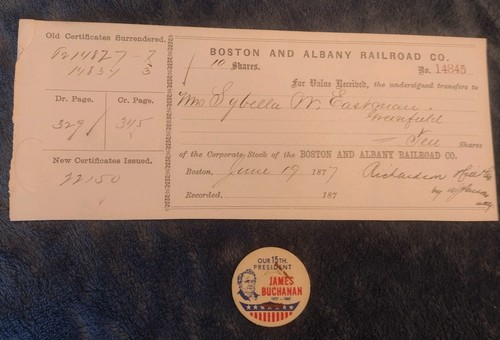 Old Certificates Surrendered.
14827 - 7
14834 3
Dr. Page.
Cr. Page.
329
345
New Certificates Issued.
22150
BOSTON AND ALBANY RAILROAD CO.
10 Shares.
No. 14845
For Value Received, the undersigned transfers to
Mrs Sybella W. Eastman
Greenfield
Ten Shares
of the Corporate Stock of the BOSTON AND ALBANY RAILROAD CO.
Boston, June 19 1877
Richardson Hill & Co
by
Recorded, 187
OUR 15TH.
PRESIDENT
JAMES
BUCHANAN
1857 - 1861